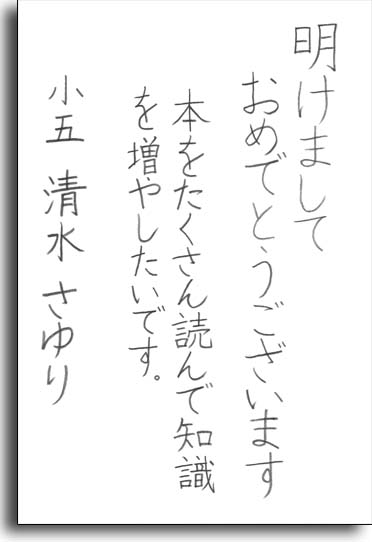 明けまして
おめでとうございます
本をたくさん読んで知識
を増やしたいです。
小五 清水 さゆり